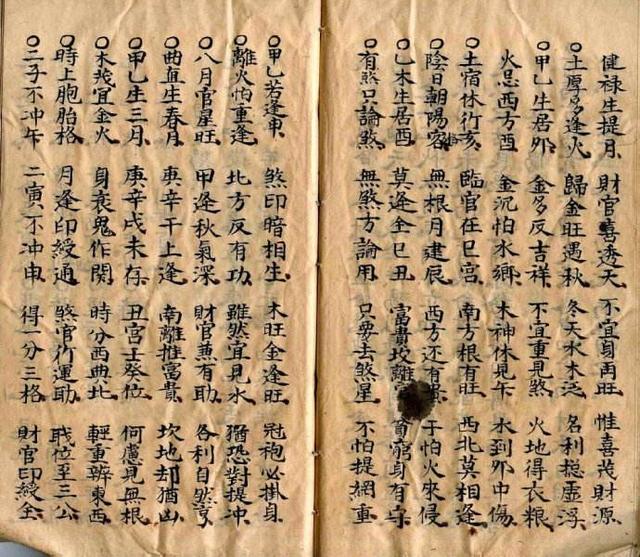 健禄生提月 財官喜透天 不宜身再旺 惟喜茂財源
〇土厚多逢火 歸金旺遇秋 冬天水木泛 名利總虛浮
〇甲乙生居卯 金多反吉祥 不宜重見煞 火地得衣粮
火忌西方酉 金沉怕水鄉 木神休見午 水到卯中傷
〇土宿休行亥 臨官在巳宮 南方根有旺 西北莫相逢
〇陰日朝陽格 無根月建辰 西方还有 于怕火來侵
〇乙木生居酉 莫逢全巳丑 富貴坎離 貧窮身有守
〇有煞只論煞 無煞方論用 只要去煞星 不怕提網重
〇甲乙若逢申 煞印暗相生 木旺金逢旺 冠袍必掛身
〇離火怕重逢 北方反有功 雖然宜見水 猶恐對提冲
〇八月官星旺 甲逢秋氣深 財官兼有助 各利自然亨
〇曲直生春月 庚辛干上逢 南離推富貴 坎地却猶凶
〇甲乙生三月 庚辛戌未存 丑宮壬癸位 何慮見無根
〇木茂宜金火 身衰鬼作関 時分西與北 輕重辨東西
〇時上胞胎格 月逢印綬通 煞官行運助 职位至三公
〇二子不冲午 二寅不冲申 得一分三格 財官印綬全